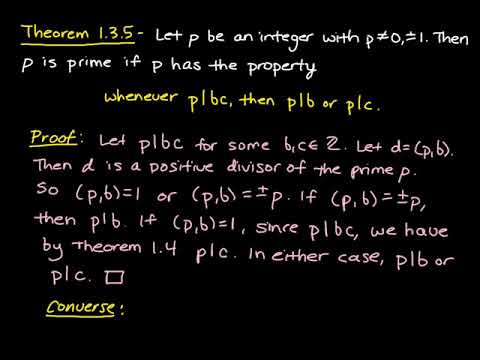 Theorem 1.3.5 - Let p be an integer with p≠0,±1. Then
p is prime if p has the property
whenever p|bc, then p|b or p|c.
Proof: Let p|bc for some b,c∈ℤ. Let d=(p,b).
Then d is a positive divisor of the prime p.
So (p,b)=1 or (p,b)=±p. If (p,b)=±p,
then p|b. If (p,b)=1, since p|bc, we have
by Theorem 1.4 p|c. In either case, p|b or
p|c. □
Converse: